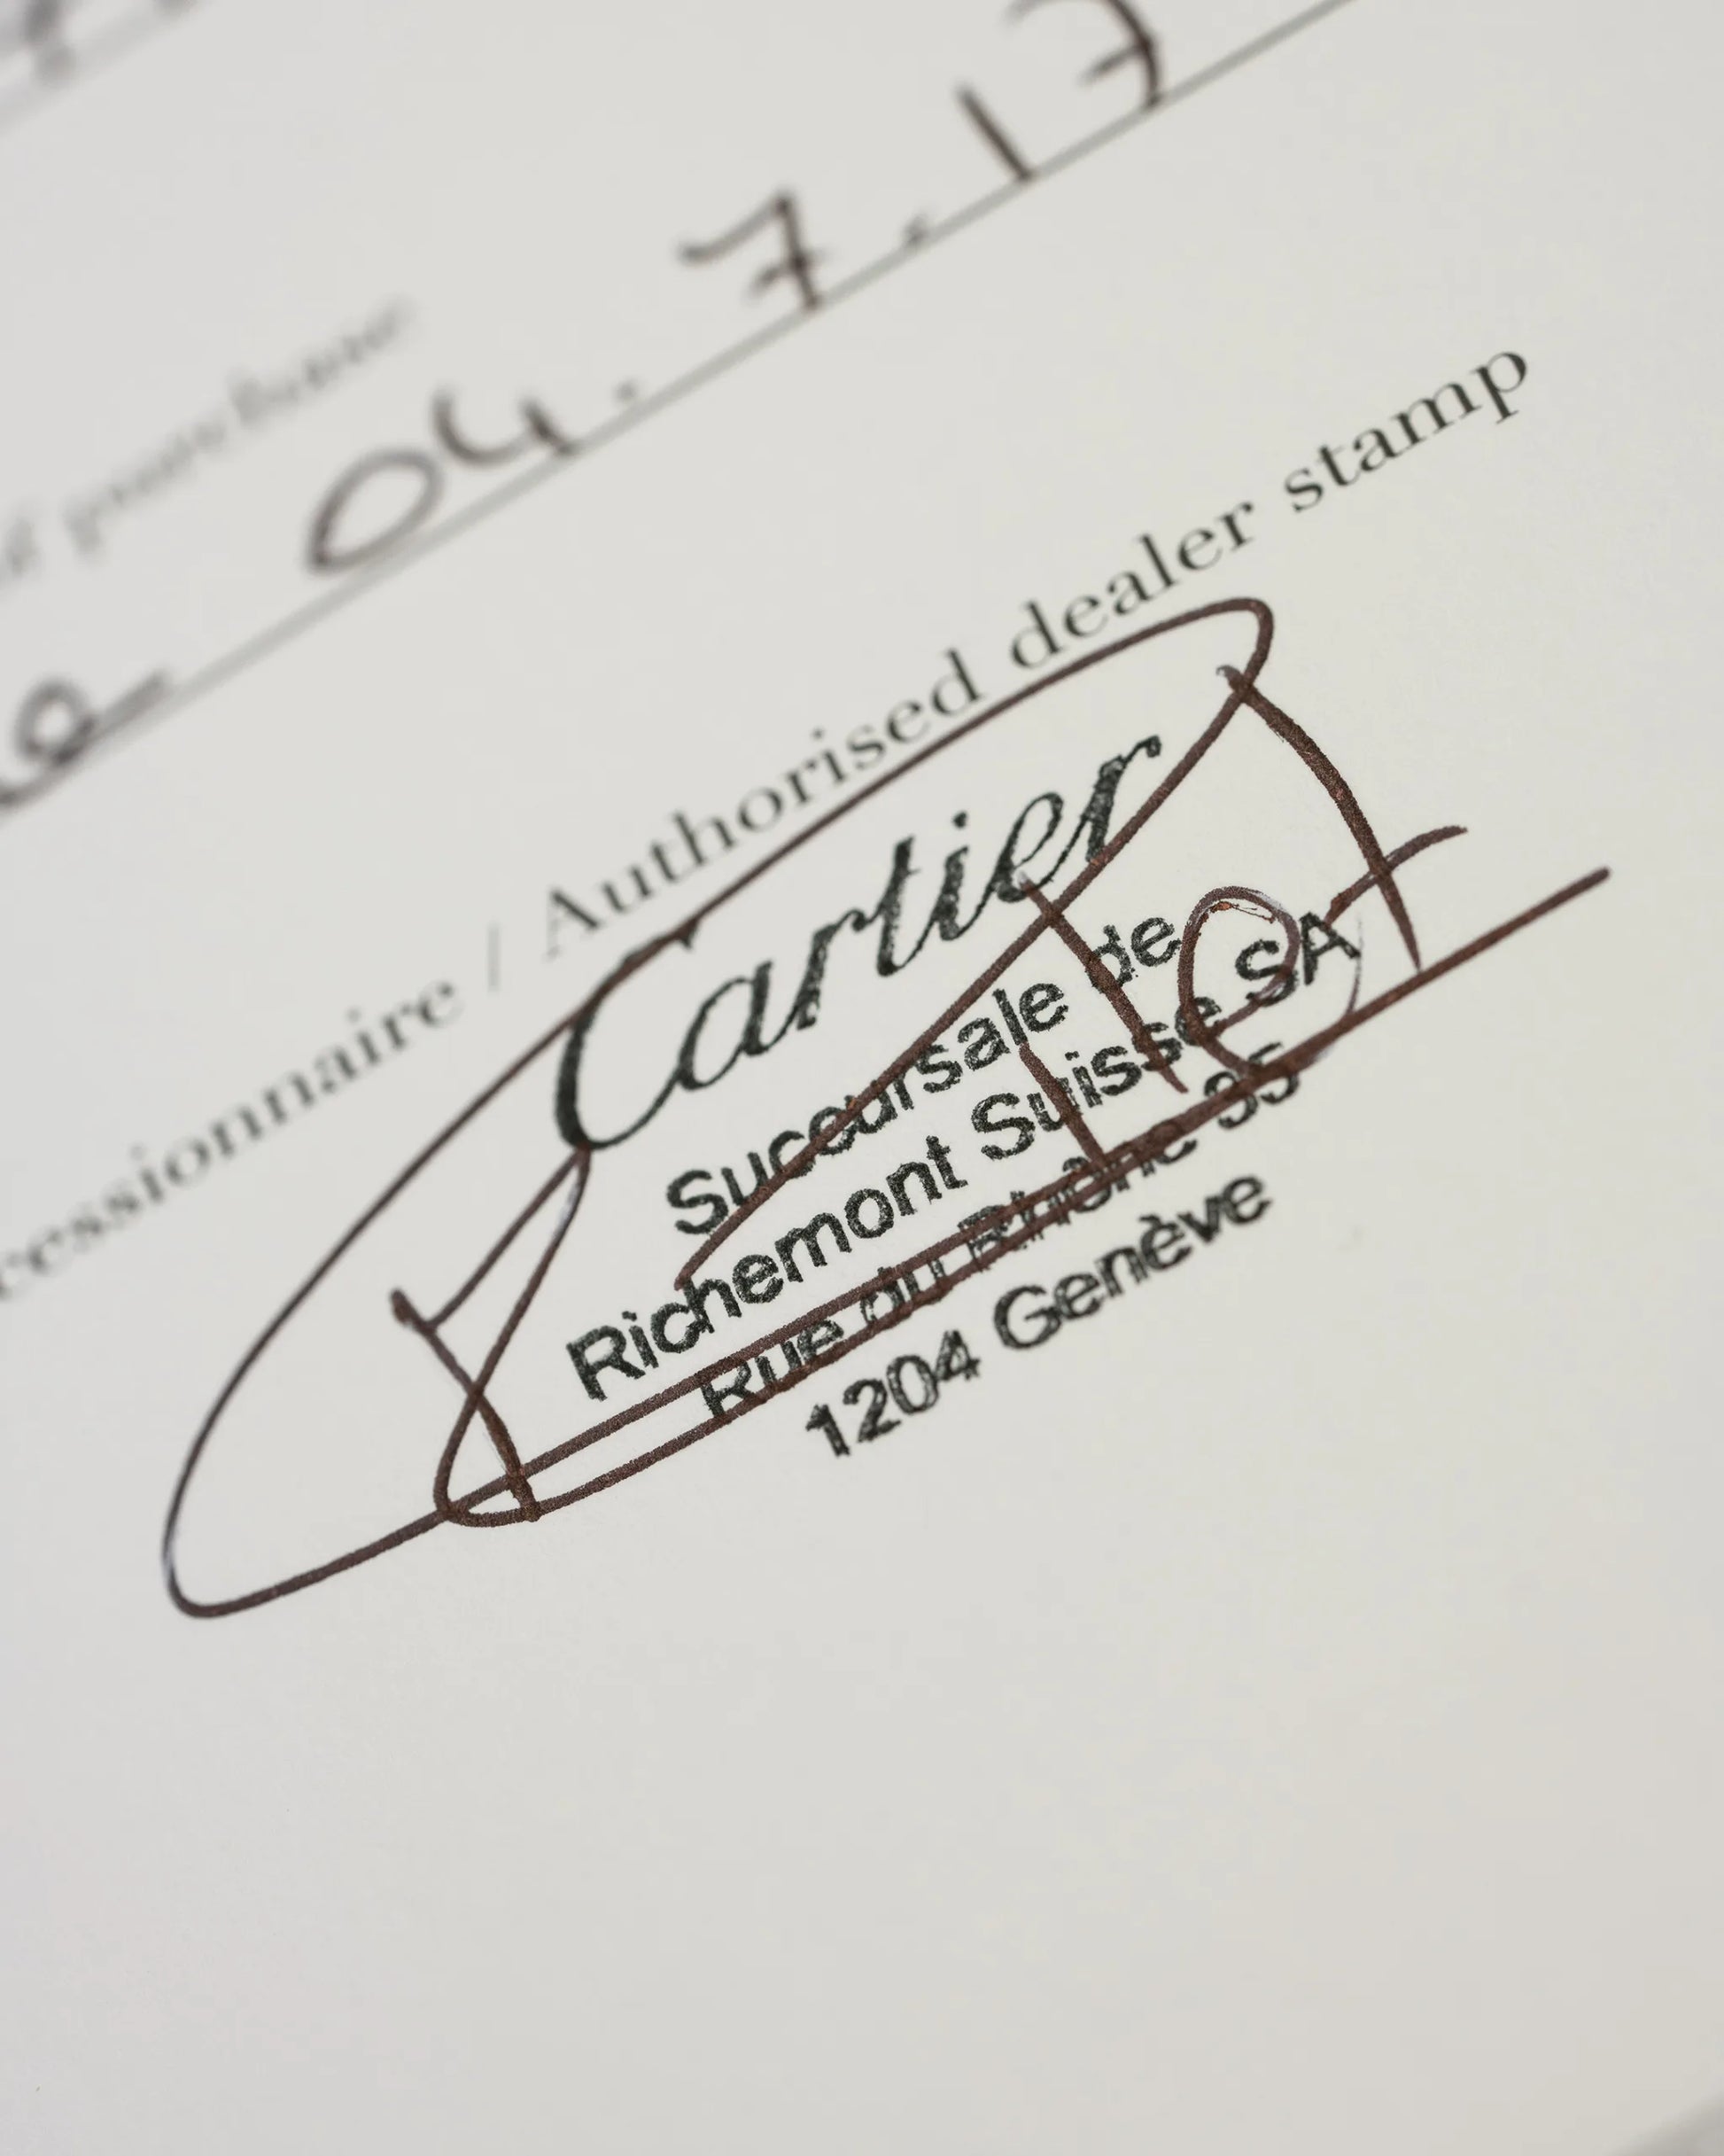 of purchase
04.7.17
cessionnaire / Authorised dealer stamp
Cartier
Succursale de
Richemont Suisse SA
Rue du Rhône 35
1204 Genève